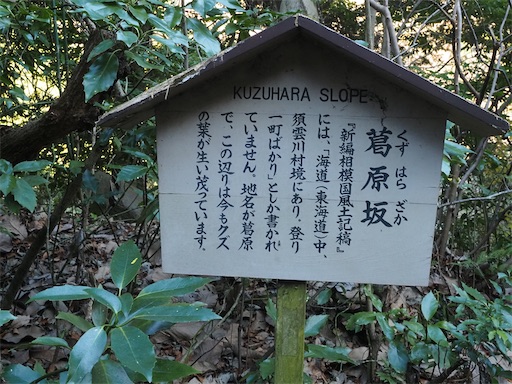 KUZUHARA SLOPE
葛原坂
くず はら ざか
『新編相模国風土記稿』
には、「海道(東海道)中、
須雲川村境にあり、登り
一町ばかり」としか書かれ
ていません。地名が葛原
で、この辺りは今もクズ
の葉が生い茂っています。